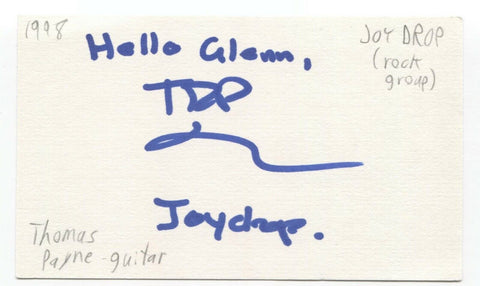 1998
JOY DROP
(rock
group)
Hello Glenn,
TDP
Joydrop.
Thomas
Payne - guitar